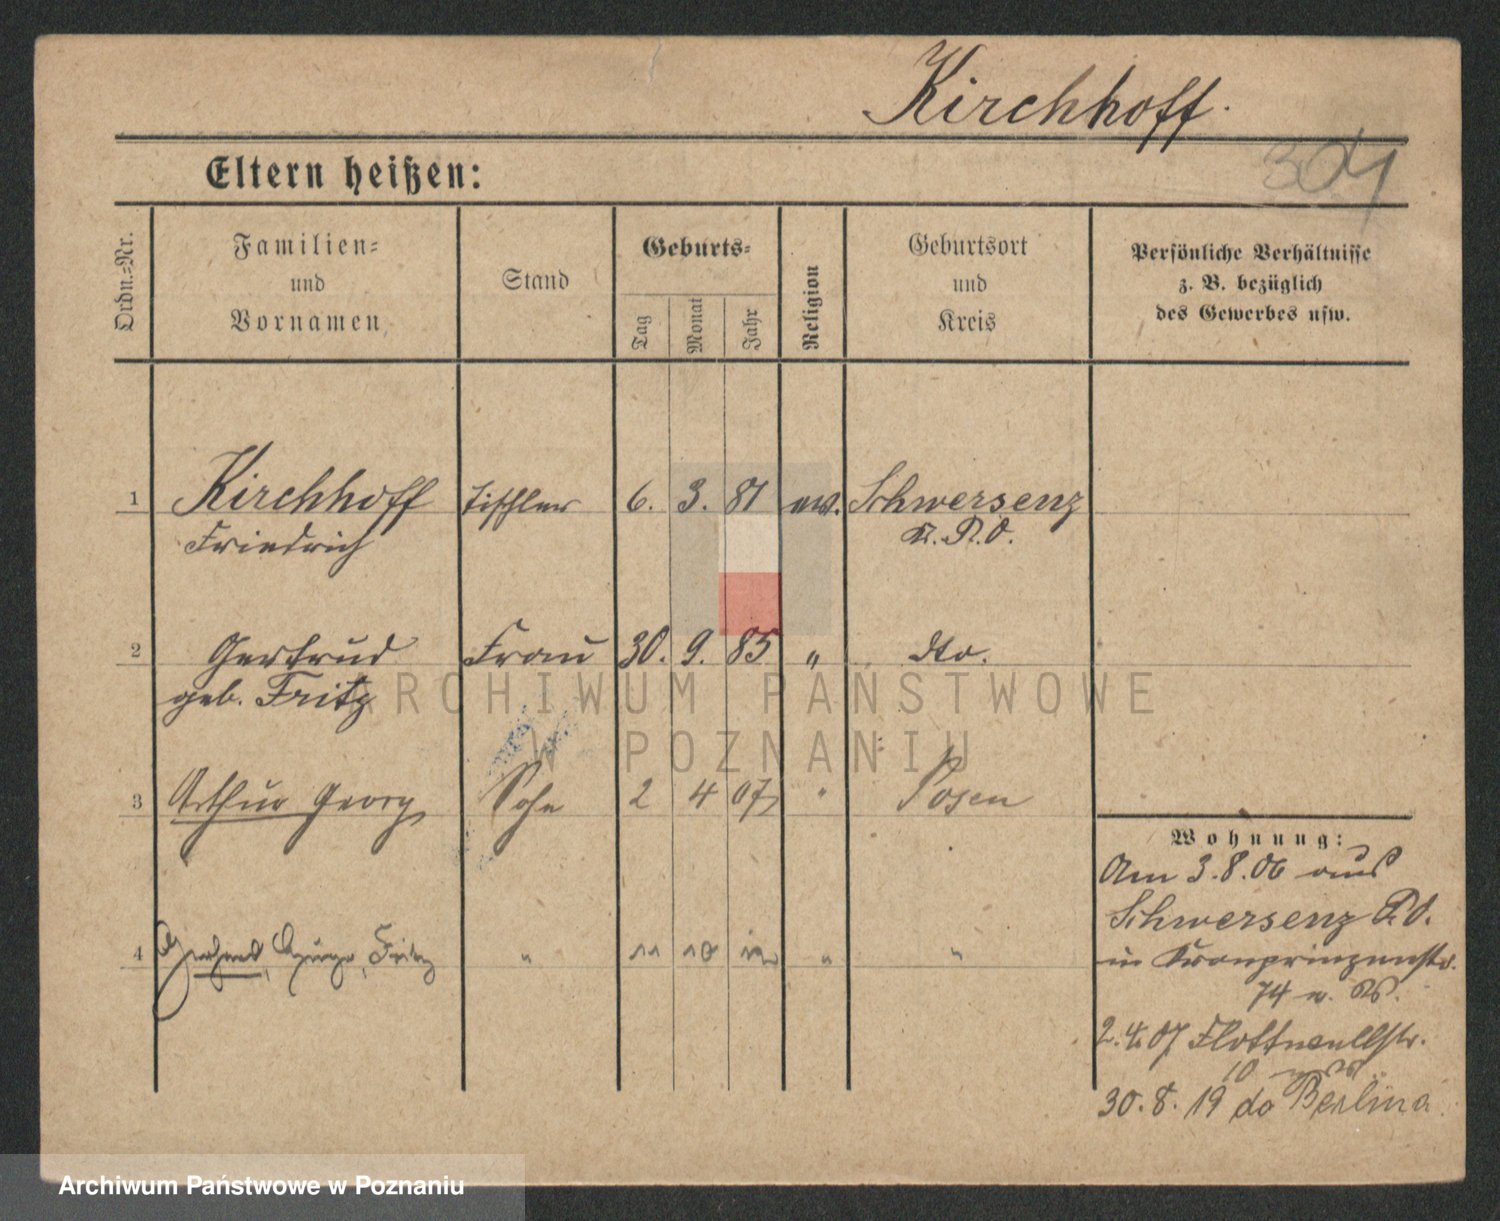 Kirchhoff.
301
Eltern heißen:
Ordn.=Nr.
Familien=
und
Vornamen
Stand
Geburts=
Tag
Monat
Jahr
Religion
Geburtsort
und
Kreis
Persönliche Verhältnisse
z. B. bezüglich
des Gewerbes usw.
1 Kirchhoff Tischler 6. 3. 81 ev. Schwersenz
Friedrich Kr. P. O.
2 Gertrud Frau 30. 9. 85 " dto.
geb. Fritz
ARCHIWUM PAŃSTWOWE
W POZNANIU
3 Arthur Georg Sohn 2 4 07 " Posen
Wohnung:
Am 3.8.06 aus
Schwersenz P. O.
4 Fritz " 11 10 " "
in Kronprinzenstr.
74 n. W.
2.4.07 Flottwellstr.
10
30.8.19 do Berlina
Archiwum Państwowe w Poznaniu